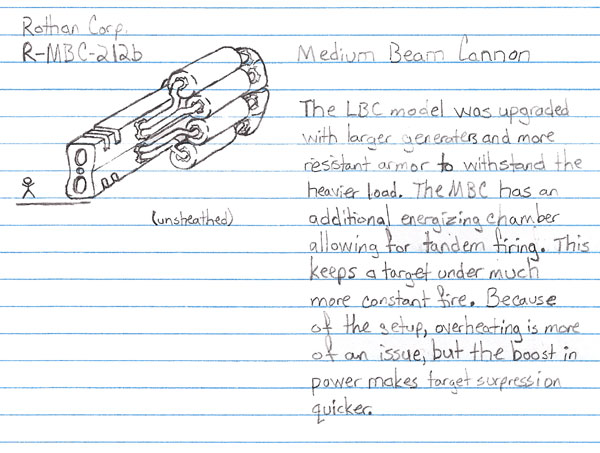 Rothan Corp.
R-MBC-212b
Medium Beam Cannon
(unsheathed)
The LBC model was upgraded
with larger generaters and more
resistant armor to withstand the
heavier load. The MBC has an
additional energizing chamber
allowing for tandem firing. This
keeps a target under much
more constant fire. Because
of the setup, overheating is more
of an issue, but the boost in
power makes target surpression
quicker.